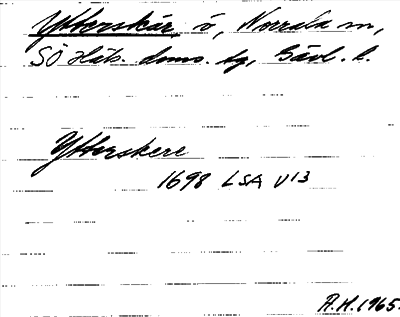 Ytterskär, ö, Norrala sn,
SÖ Häls. doms. tg, Gävl. l.
Ytterskere
1698 LSA U13
A.H. 1965.